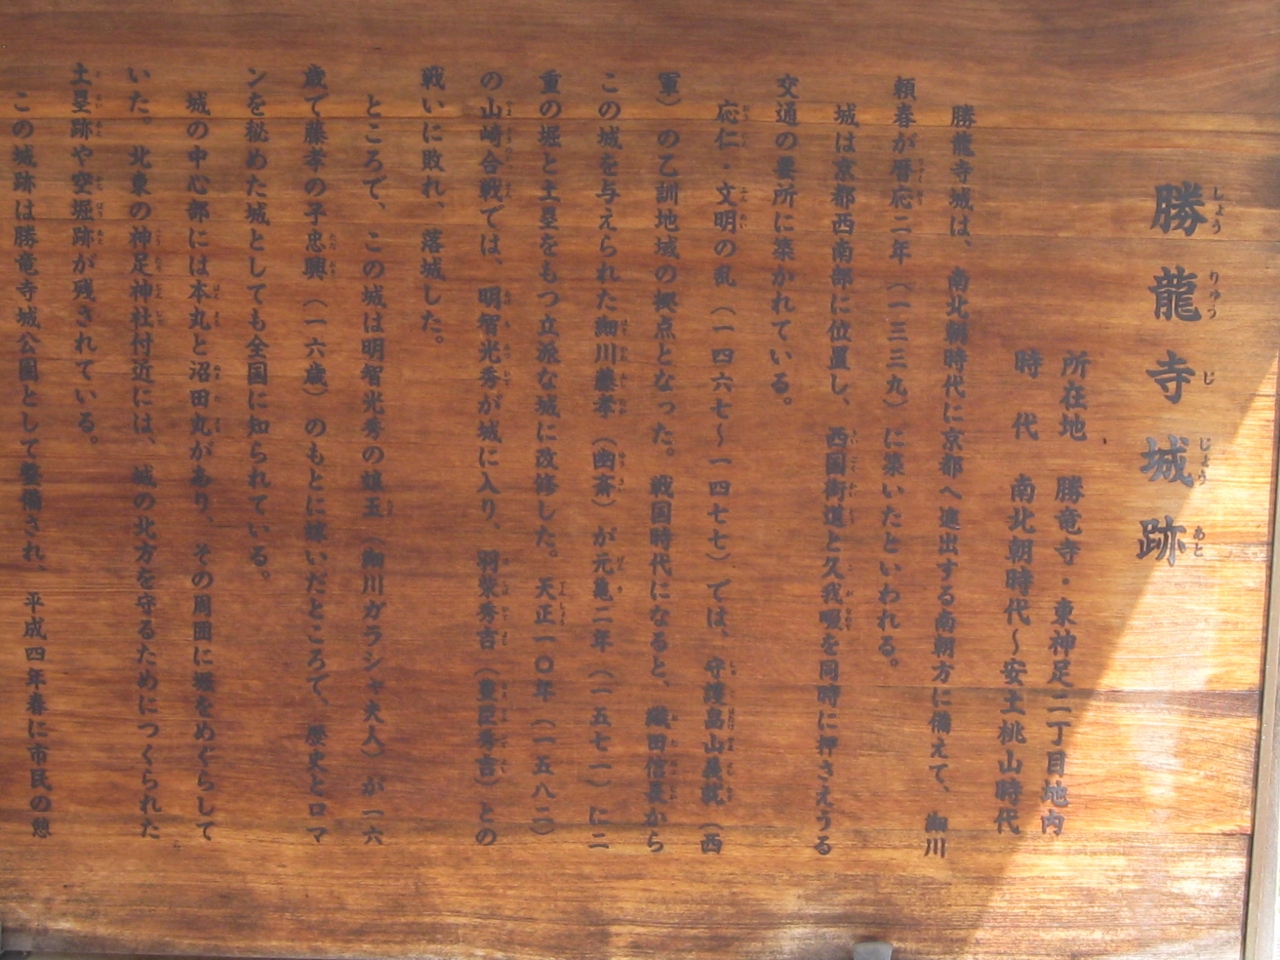 勝龍寺城跡
所在地　勝竜寺・東神足二丁目地内
時　代　南北朝時代〜安土桃山時代
勝龍寺城は、南北朝時代に京都へ進出する南朝方に備えて、細川
頼春が暦応二年（一三三九）に築いたといわれる。
城は京都西南部に位置し、西国街道と久我畷を同時に押さえうる
交通の要所に築かれている。
応仁・文明の乱（一四六七〜一四七七）では、守護畠山義就（西
軍）の乙訓地域の拠点となった。戦国時代になると、織田信長から
この城を与えられた細川藤孝（幽斎）が元亀二年（一五七一）に二
重の堀と土塁をもつ立派な城に改修した。天正一〇年（一五八二）
の山崎合戦では、明智光秀が城に入り、羽柴秀吉（豊臣秀吉）との
戦いに敗れ、落城した。
ところで、この城は明智光秀の娘玉（細川ガラシャ夫人）が一六
歳で藤孝の子忠興（一六歳）のもとに嫁いだところで、歴史とロマ
ンを秘めた城としても全国に知られている。
城の中心部には本丸と沼田丸があり、その周囲に堀をめぐらして
いた。北東の神足神社付近には、城の北方を守るためにつくられた
土塁跡や空堀跡が残されている。
この城跡は勝竜寺城公園として整備され、平成四年春に市民の憩